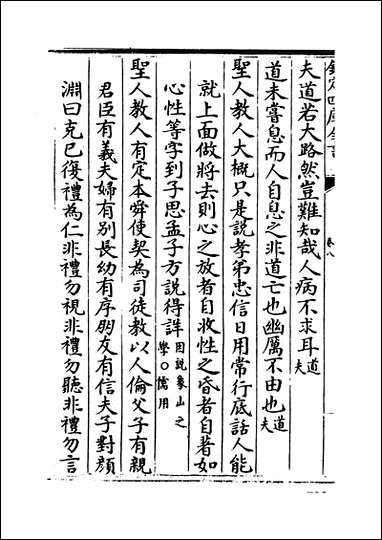 欽定四庫全書
卷八
夫道若大路然豈難知哉人病不求耳道夫
道未嘗息而人自息之非道亡也幽厲不由也道夫
聖人教人大概只是說孝弟忠信日用常行底話人能
就上面做將去則心之放者自收性之昏者自著如
心性等字到子思孟子方說得詳因說象山之學○儒用
聖人教人有定本舜使契為司徒教以人倫父子有親
君臣有義夫婦有別長幼有序朋友有信夫子對顔
淵曰克已復禮為仁非禮勿視非禮勿聽非禮勿言